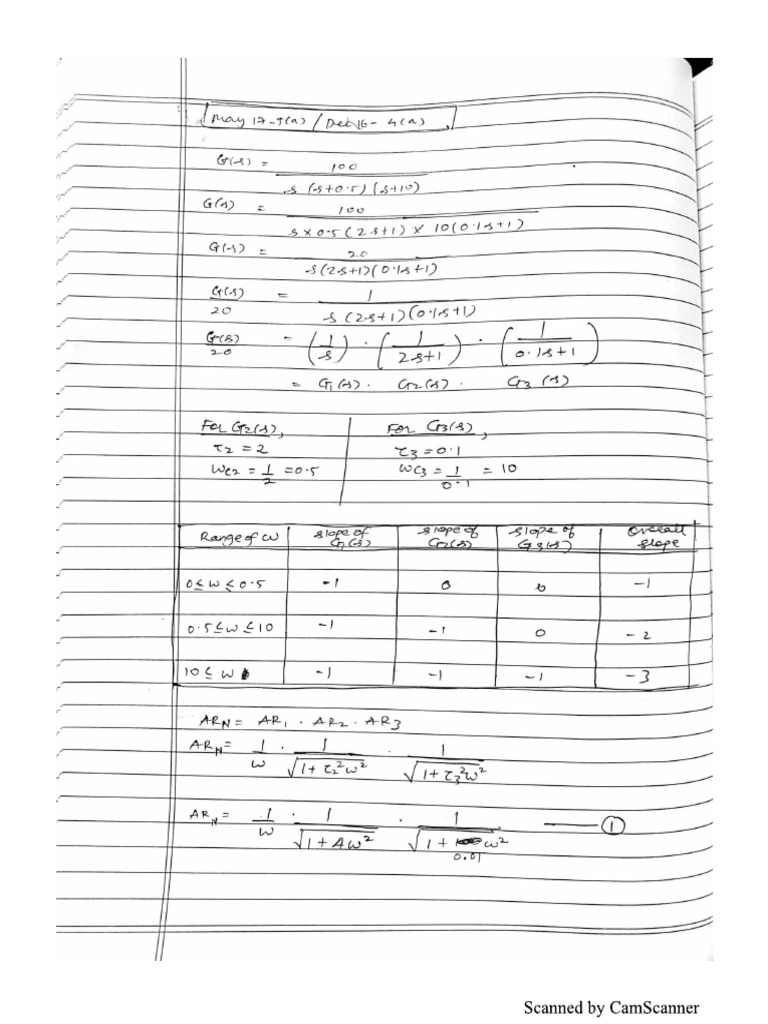 May 17-5(a) / Dec16- 4(a)
G(s) = 100 / s (s+0.5) (s+10)
G(s) = 100 / s x 0.5 (2s+1) x 10(0.1s+1)
G(s) = 20 / s(2s+1)(0.1s+1)
G(s)/20 = 1 / s (2s+1)(0.1s+1)
G(s)/20 = (1/s) · (1/2s+1) · (1/0.1s+1)
= G1(s) · G2(s) · G3(s)
For G2(s), For G3(s),
τ2 = 2 τ3 = 0.1
WC2 = 1/2 = 0.5 WC3 = 1/0.1 = 10
Range of ω slope of G1(s) slope of G2(s) slope of G3(s) Overall slope
0 ≤ W ≤ 0.5 -1 0 0 -1
0.5 ≤ W ≤ 10 -1 -1 0 -2
10 ≤ W -1 -1 -1 -3
ARN = AR1 · AR2 · AR3
ARN = 1/ω · 1/√1+τ2²ω² · 1/√1+τ3²ω²
ARN = 1/ω · 1/√1+4ω² · 1/√1+0.01ω² —— ①
Scanned by CamScanner